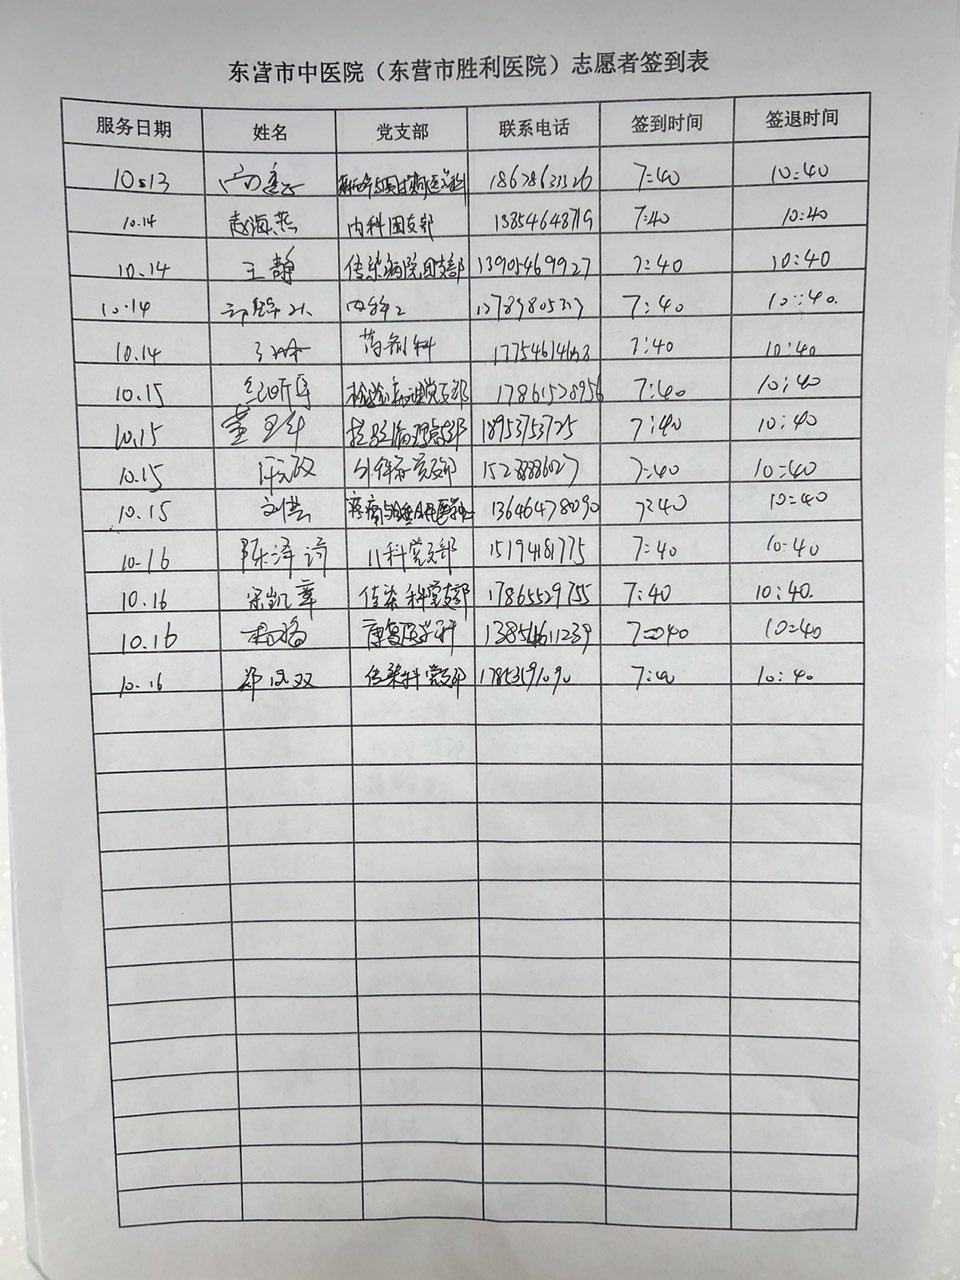 东营市中医院（东营市胜利医院）志愿者签到表
服务日期 姓名 党支部 联系电话 签到时间 签退时间
10.13 7:40 10:40
10.14 赵海燕 内科团支部 13854648719 7:40 10:40
10.14 王静 传染病院团支部 13905469927 7:40 10:40
10.14 内科2 7:40 10:40.
10.14 药剂科 7:40 10:40
10.15 检验病理党支部 17861528956 7:40 10:40
10.15 检验病理党支部 18953753725 7:40 10:40
10.15 外科党支部 7:40 10=40
10.15 文芸 13646478090 7:40 10=40
10-16 陈泽诗 儿科党支部 15194181775 7:40 10:40
10.16 宋凯章 传染科党支部 17865559755 7:40 10:40.
10.16 杨璐 康复医学科 13854611239 7:40 10=40
10.16 郑风双 传染科党支部 17853591090 7:40 10:40